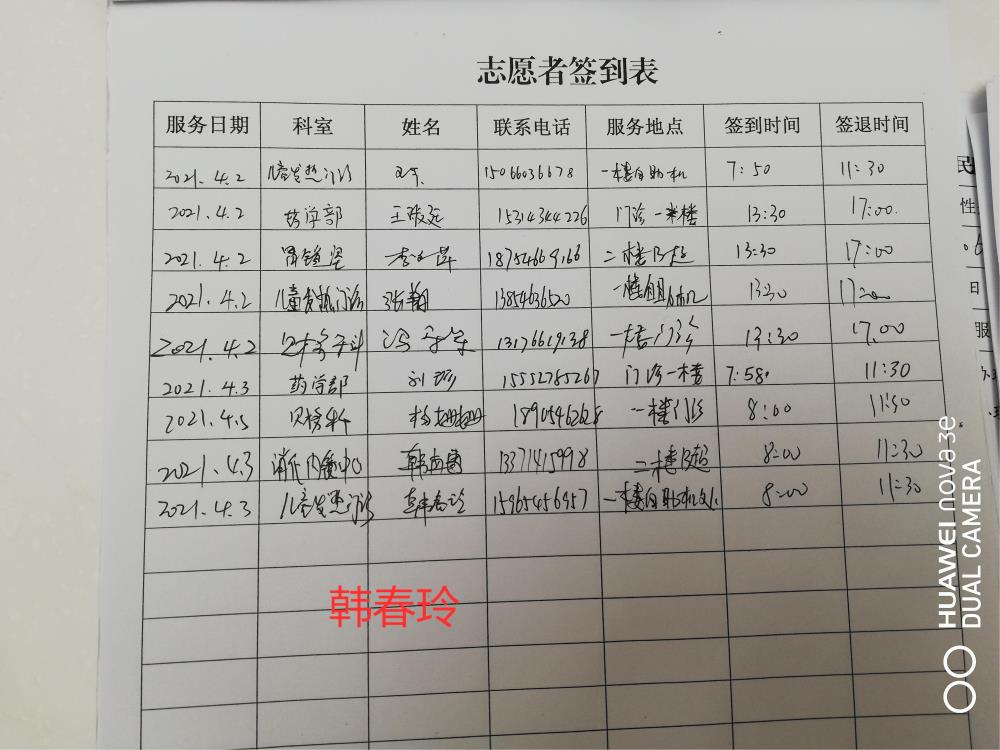 志愿者签到表
服务日期 科室 姓名 联系电话 服务地点 签到时间 签退时间
2021.4.2 儿童发热门诊 15066036678 一楼自助机 7:50 11:30
2021.4.2 药学部 15314344226 门诊一楼 13:30 17:00.
2021.4.2 18754669166 二楼B超 13:30 17:00
2021.4.2 儿童发热门诊 张翔 13854636520 一楼自助机 13:30 17:00
2021.4.2 13176619138 一楼门诊 13:30 17.00
2021.4.3 药学部 刘珍 15552785267 门诊一楼 7:58. 11:30
2021.4.3 杨姗姗 18905462628 一楼门诊 8:00 11:30
2021.4.3 消化内镜中心 13371415998 二楼B超 8:00 11:30
2021.4.3 儿童发热门诊 韩春玲 15965456957 一楼自助机处 8:00 11:30
韩春玲
民
性
日
服
HUAWEI nova 3e
DUAL CAMERA